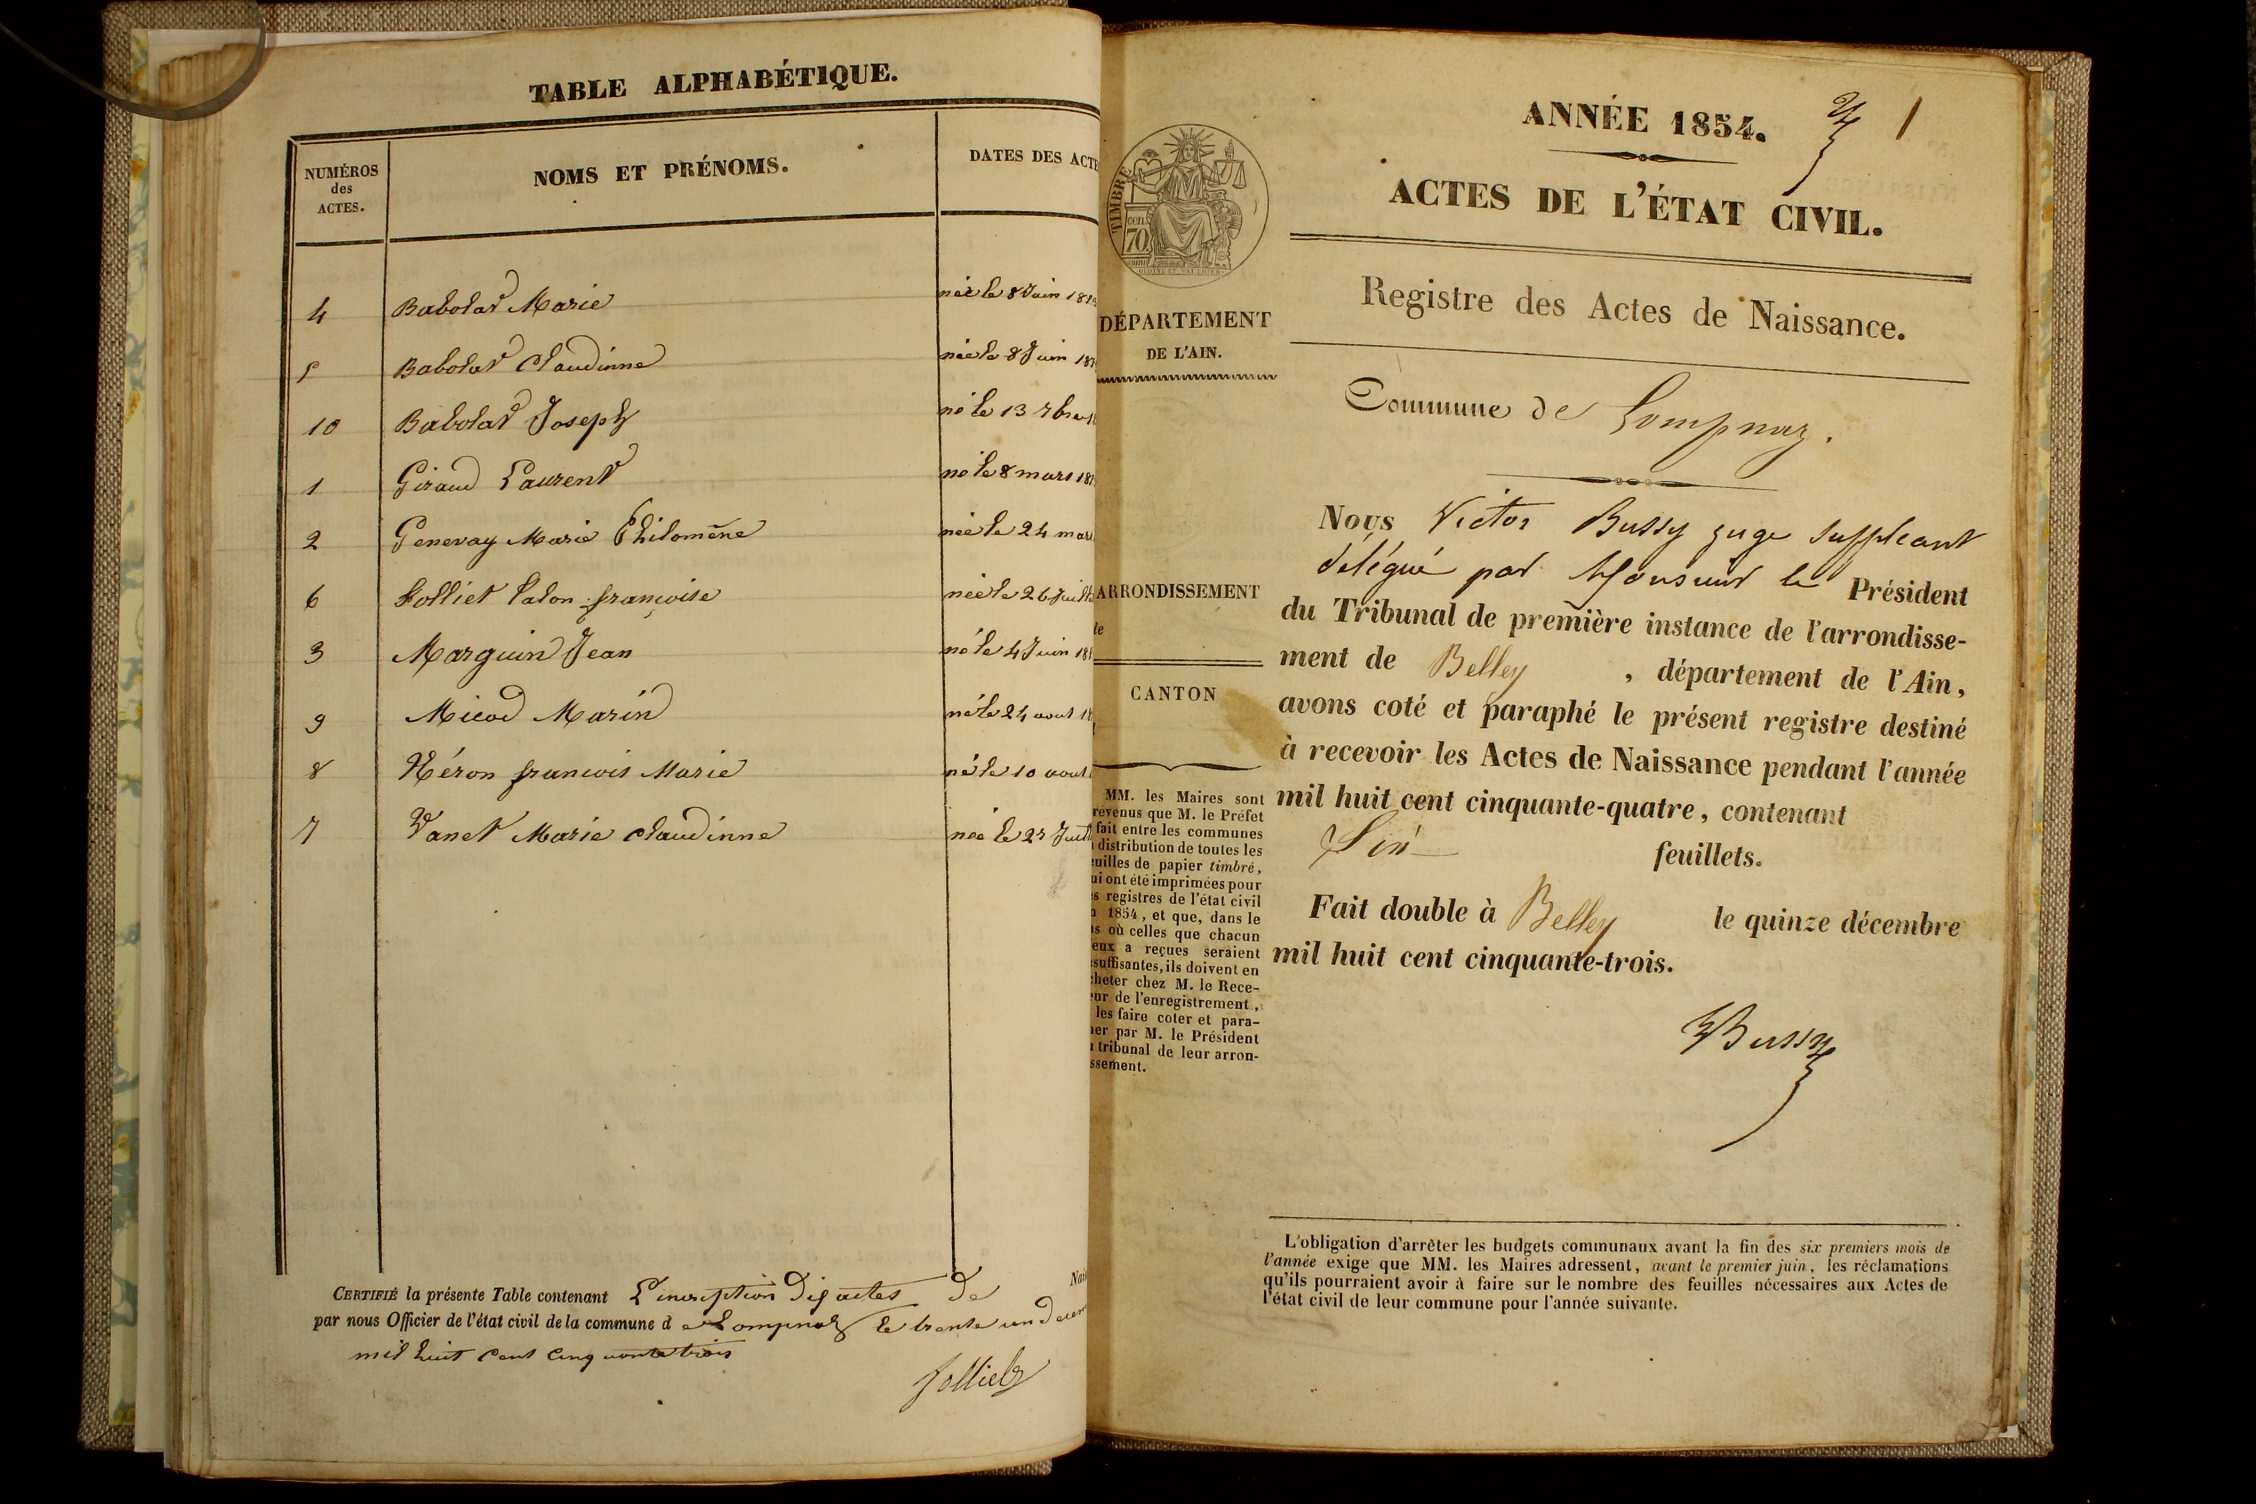 TABLE ALPHABÉTIQUE.
NUMÉROS
des
ACTES.
NOMS ET PRÉNOMS.
DATES DES ACTE
4 Babolat Marie née le 8 Juin 18
5 Babolat Claudinne née le 8 Juin 18
10 Babolat Joseph né le 13
1 Giraud Laurent né le 8 mars 18
2 Genevay Marie Philomène née le 24 mar
6 folliet françoise née le 26 Juill
3 Marguin Jean né le 4 Juin 18
9 Micod Marin né le 24 aout 1
8 Héron francois Marie né le 10 aout
7 Vanet Marie claudinne née le 27 Juill
CERTIFIÉ la présente Table contenant L'inscription actes de Nai
par nous Officier de l'état civil de la commune d e Lompnaz le trente un decem
mil huit cent cinquante trois
folliet
ANNÉE 1854.
1
ACTES DE L'ÉTAT CIVIL.
Registre des Actes de Naissance.
Commune de Lompnaz.
TIMBRE
70
DÉPARTEMENT
DE L'AIN.
ARRONDISSEMENT
de
CANTON
MM. les Maires sont
révenus que M. le Préfet
fait entre les communes
distribution de toutes les
euilles de papier timbré,
ui ont été imprimées pour
s registres de l'état civil
n 1854, et que, dans le
s où celles que chacun
eux a reçues seraient
suffisantes, ils doivent en
cheter chez M. le Rece-
eur de l'enregistrement,
les faire coter et para-
her par M. le Président
tribunal de leur arron-
ssement.
Nous Victor Bussy juge suppleant
délégué par Monsieur le Président
du Tribunal de première instance de l'arrondisse-
ment de Belley, département de l'Ain,
avons coté et paraphé le présent registre destiné
à recevoir les Actes de Naissance pendant l'année
mil huit cent cinquante-quatre, contenant
Six feuillets.
Fait double à Belley le quinze décembre
mil huit cent cinquante-trois.
VBussy
L'obligation d'arrêter les budgets communaux avant la fin des six premiers mois de
l'année exige que MM. les Maires adressent, avant le premier juin, les réclamations
qu'ils pourraient avoir à faire sur le nombre des feuilles nécessaires aux Actes de
l'état civil de leur commune pour l'année suivante.